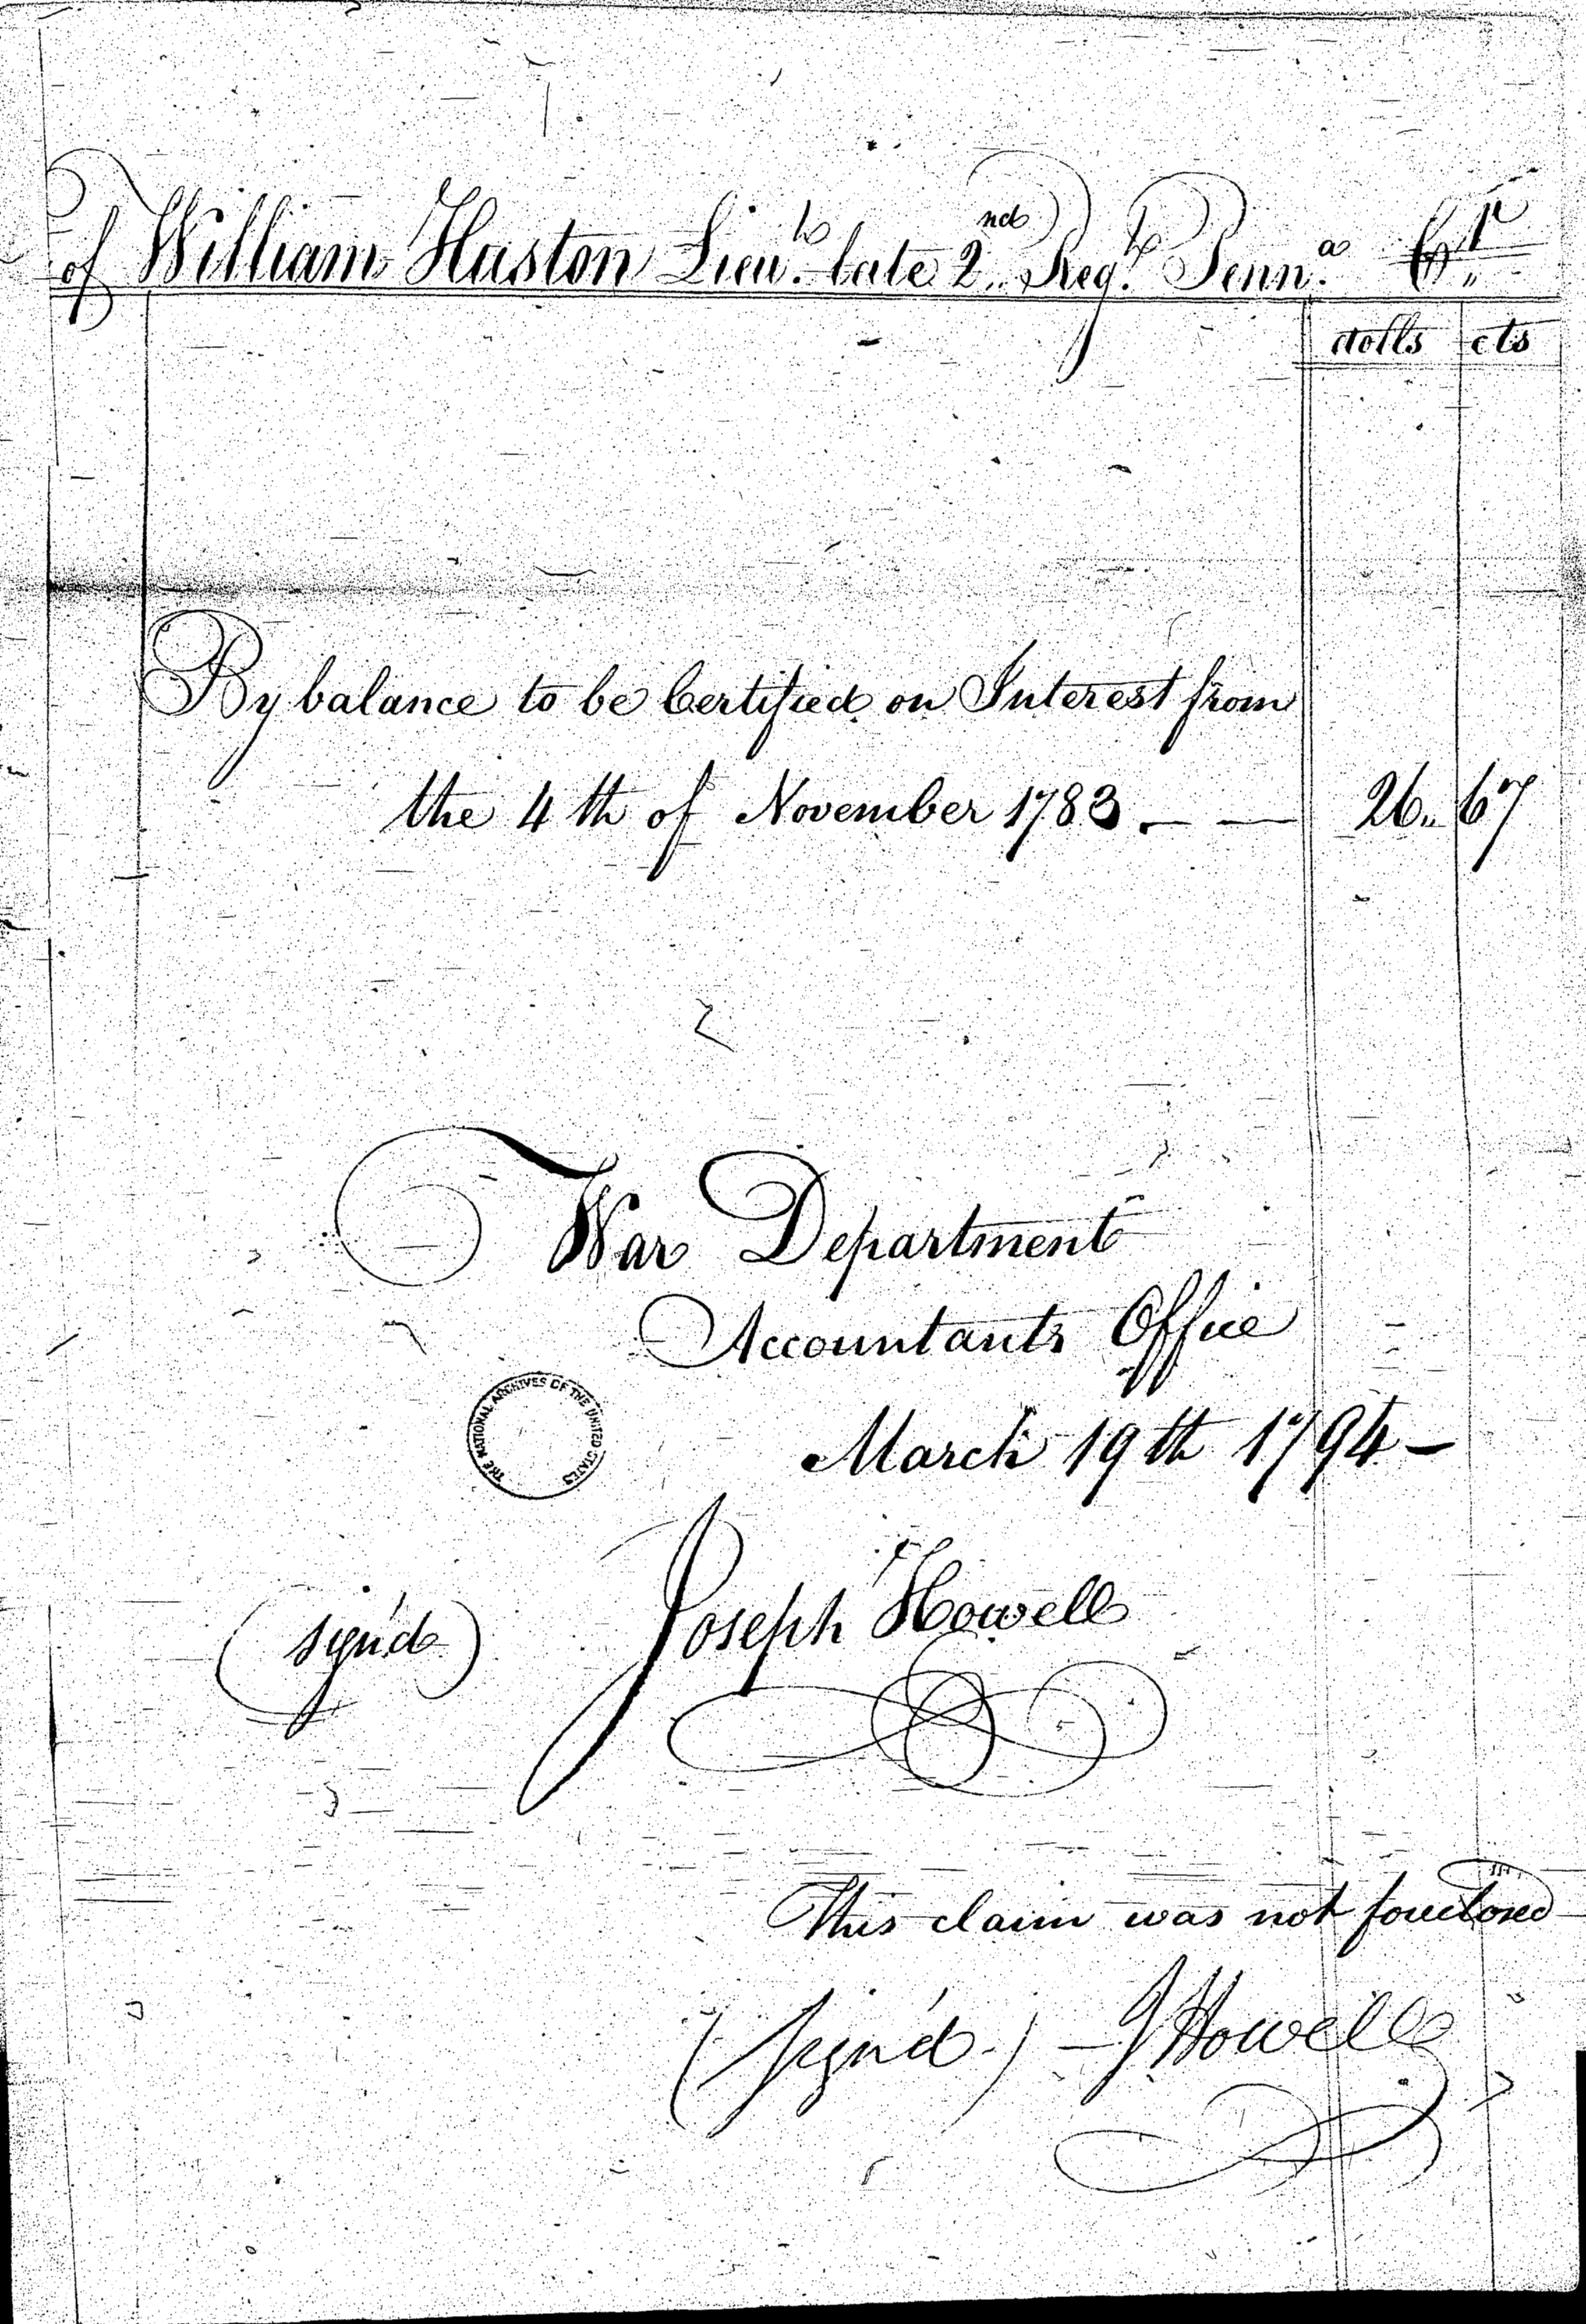 of William Huston Lieu.t late 2.nd Reg.t Penn.a Cr
dolls cts
By balance to be Certified on Interest from
the 4th of November 1783. — — 26.. 67
War Department
Accountants Office
March 19th 1794 —
(sign'd) Joseph Howell
THE NATIONAL ARCHIVES OF THE UNITED STATES
This claim was not foreclosed
(sign'd) — J Howell